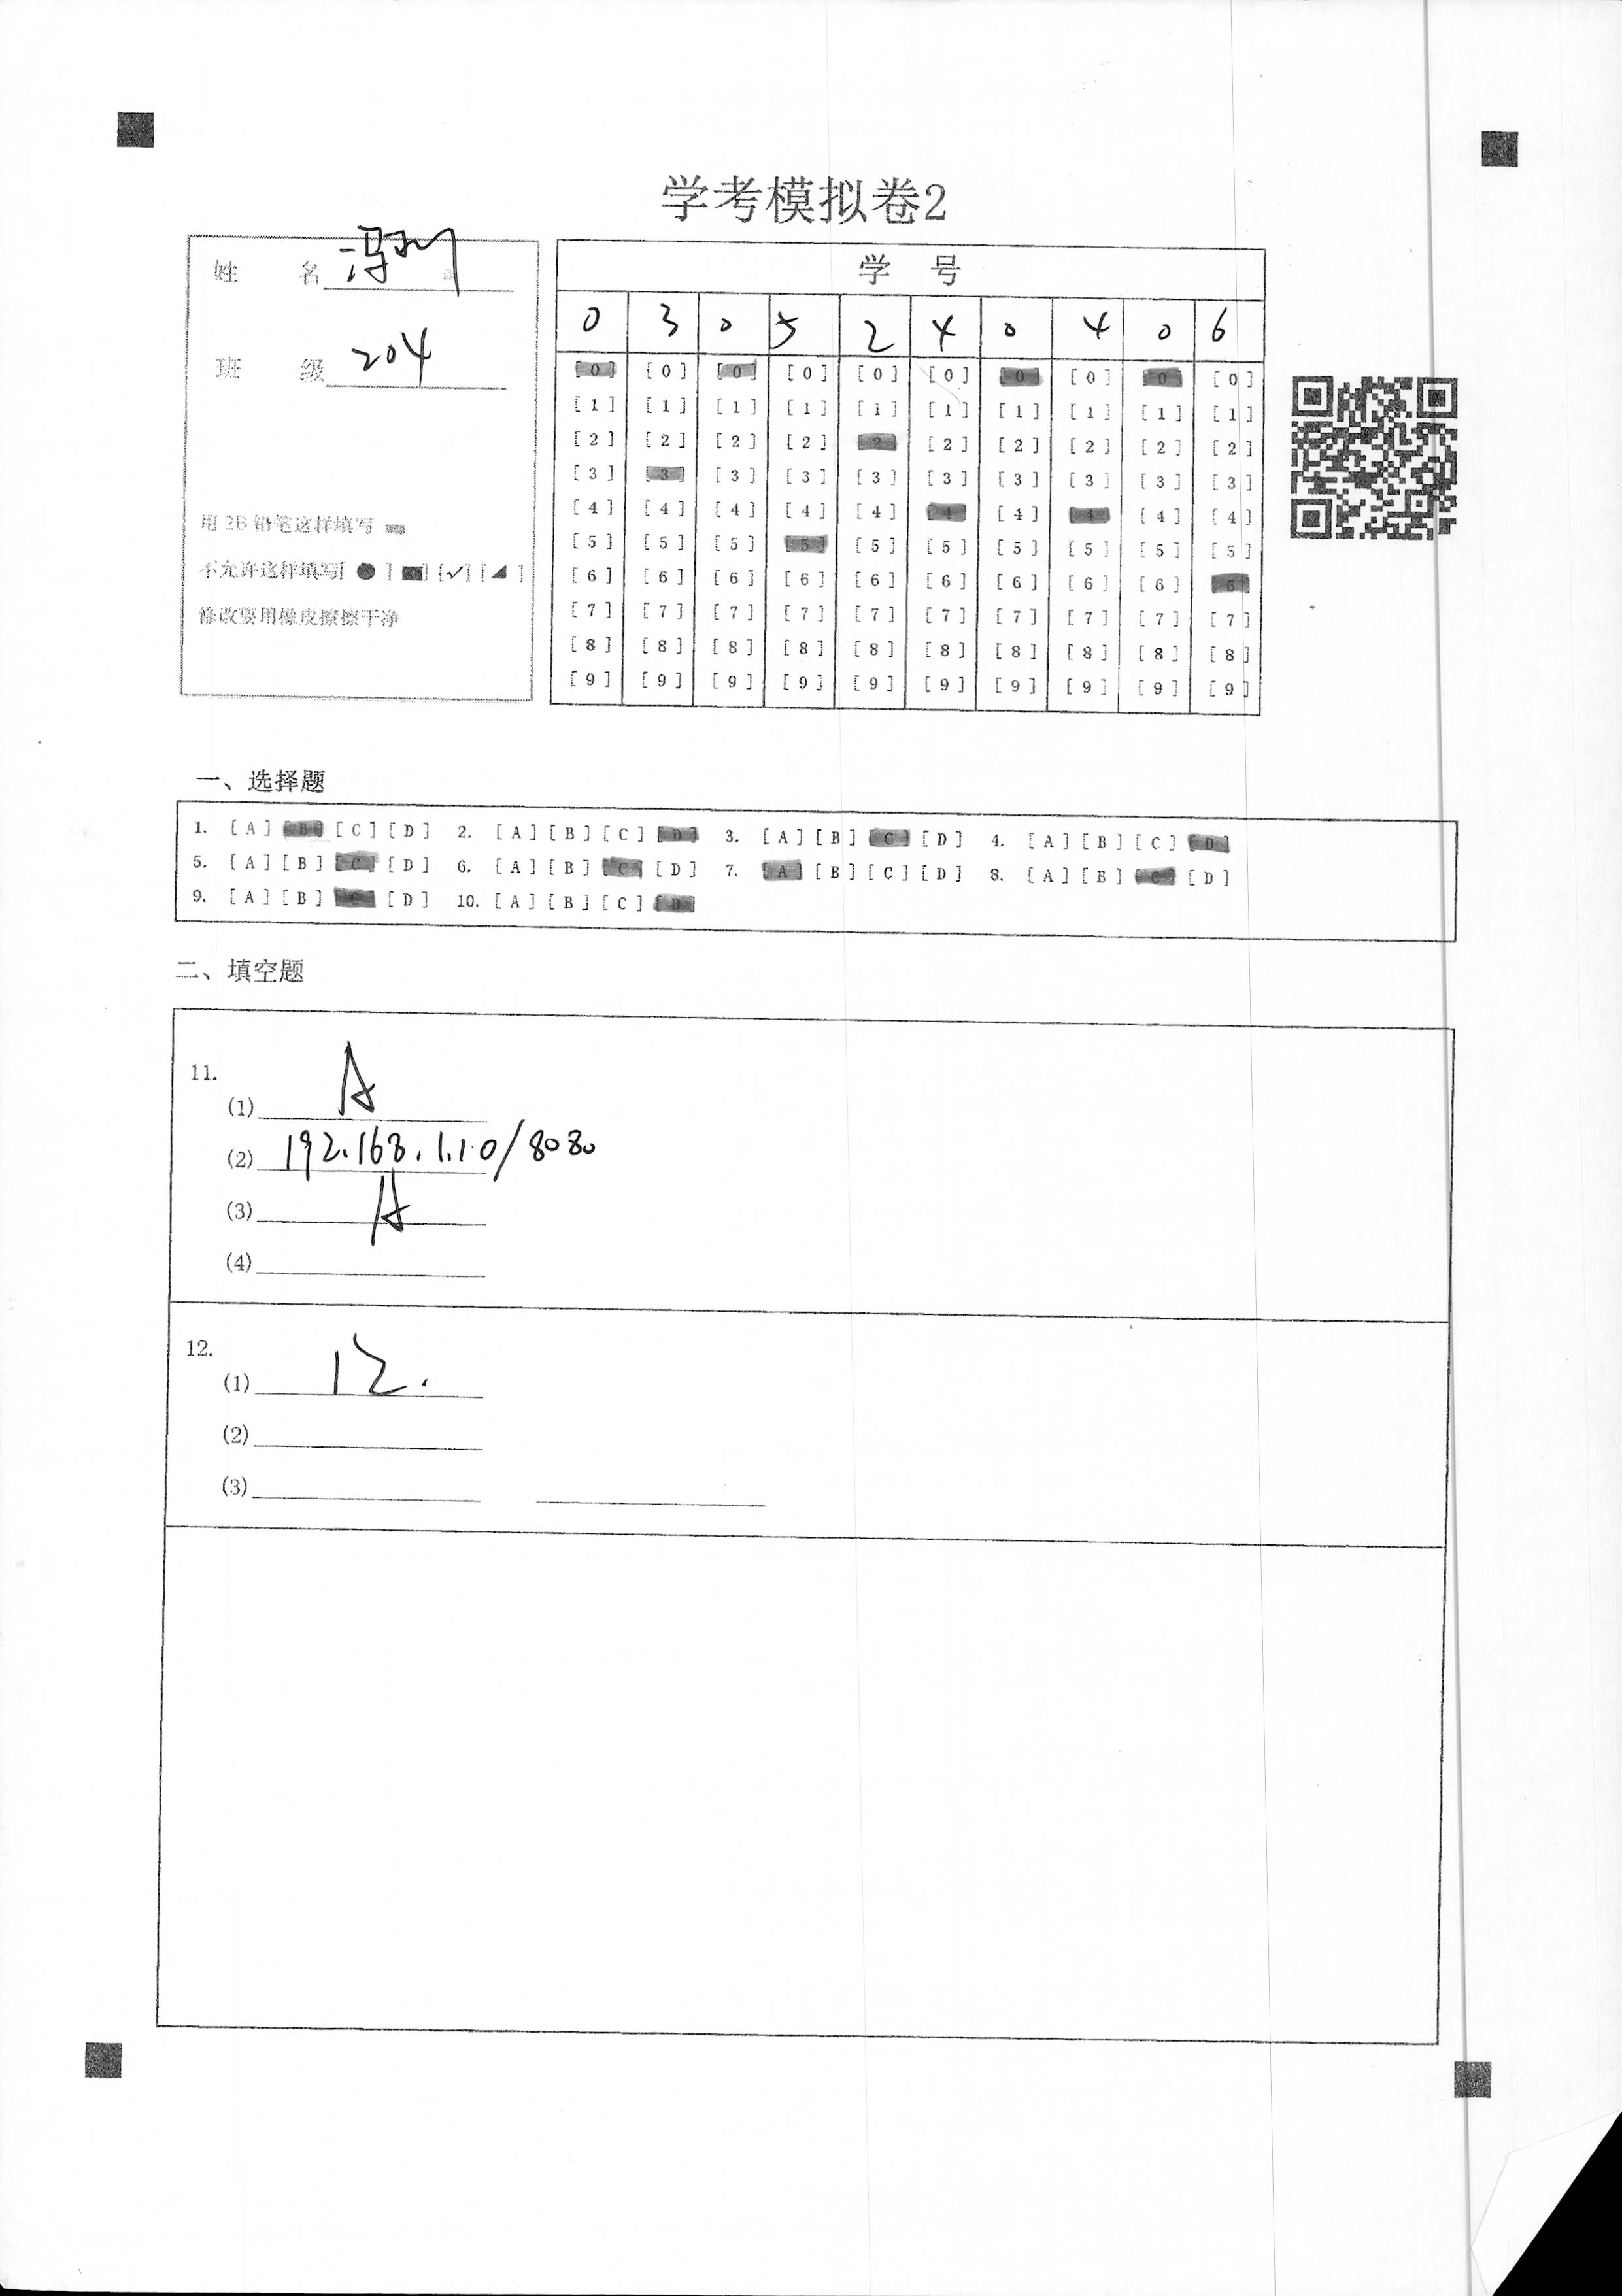 学考模拟卷2
姓 名
班 级 204
用 2B 铅笔这样填写
不允许这样填写[ ● ] [■] [✓] [◢ ]
修改要用橡皮擦擦干净
学 号
0 3 0 5 2 4 0 4 0 6
[0] [0] [0] [0] [0] [0] [0] [0] [0] [0]
[1] [1] [1] [1] [1] [1] [1] [1] [1] [1]
[2] [2] [2] [2] [2] [2] [2] [2] [2] [2]
[3] [3] [3] [3] [3] [3] [3] [3] [3] [3]
[4] [4] [4] [4] [4] [4] [4] [4] [4] [4]
[5] [5] [5] [5] [5] [5] [5] [5] [5] [5]
[6] [6] [6] [6] [6] [6] [6] [6] [6] [6]
[7] [7] [7] [7] [7] [7] [7] [7] [7] [7]
[8] [8] [8] [8] [8] [8] [8] [8] [8] [8]
[9] [9] [9] [9] [9] [9] [9] [9] [9] [9]
一、选择题
1. [A] [B] [C] [D] 2. [A] [B] [C] [D] 3. [A] [B] [C] [D] 4. [A] [B] [C] [D]
5. [A] [B] [C] [D] 6. [A] [B] [C] [D] 7. [A] [B] [C] [D] 8. [A] [B] [C] [D]
9. [A] [B] [C] [D] 10. [A] [B] [C] [D]
二、填空题
11.
(1) A
(2) 192.168.1.1.0/8080
(3) A
(4)
12.
(1) 12.
(2)
(3)